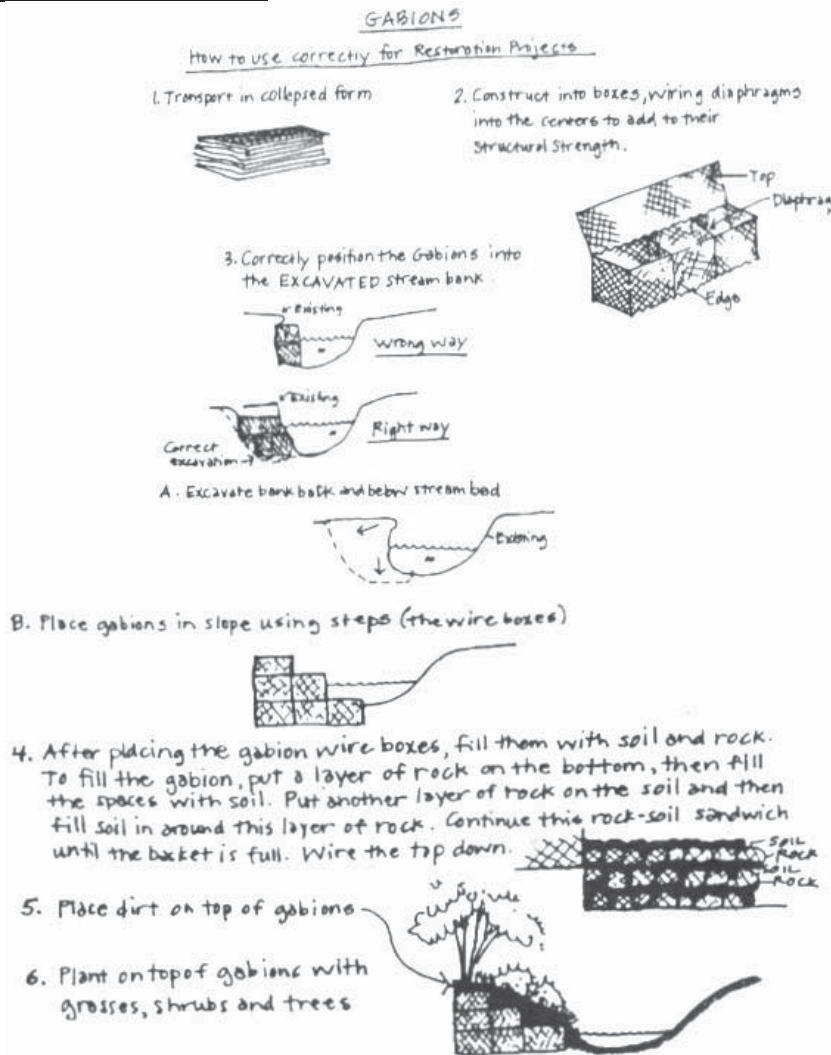 GABIONS
How to use correctly for Restoration Projects
1. Transport in collapsed form
2. Construct into boxes, wiring diaphragms
into the centers to add to their
structural strength.
Top
Diaphrag
Edge
3. Correctly position the Gabions into
the EXCAVATED stream bank.
Existing
Wrong way
Existing
Right way
Correct
excavation
A. Excavate bank back and below stream bed
Existing
B. Place gabions in slope using steps (the wire boxes)
4. After placing the gabion wire boxes, fill them with soil and rock.
To fill the gabion, put a layer of rock on the bottom, then fill
the spaces with soil. Put another layer of rock on the soil and then
fill soil in around this layer of rock. Continue this rock-soil sandwich
until the basket is full. Wire the top down.
SOIL
ROCK
SOIL
ROCK
5. Place dirt on top of gabions
6. Plant on top of gabions with
grasses, shrubs and trees